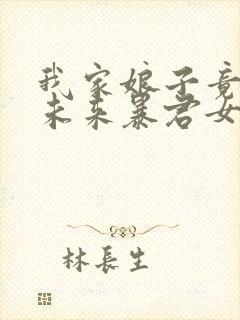 我家娘子竟
未来暴君女
林長生